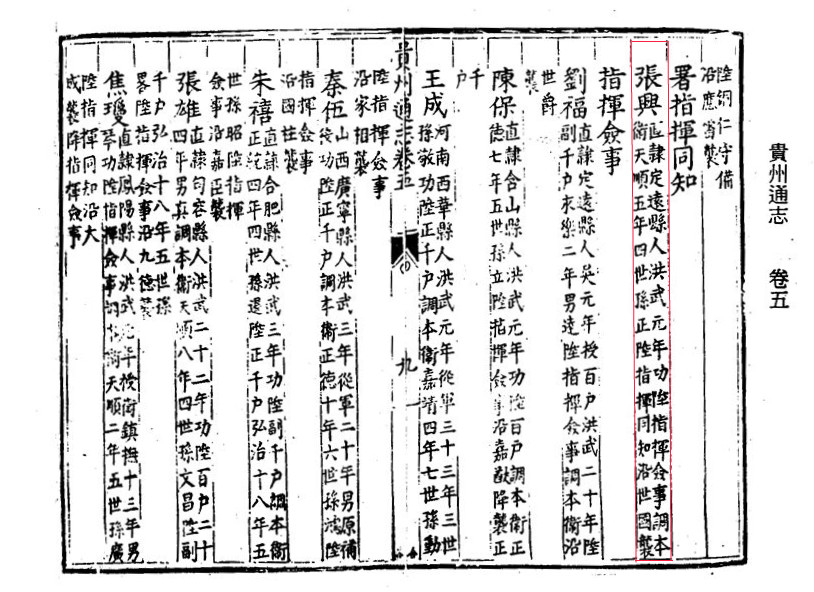 貴州通志 卷五
陞銅仁守備
沿應爵襲
署指揮同知
張興直隷定遠縣人洪武元年功陞指揮僉事調本
衛天順五年四世孫正陞指揮同知沿世國襲
指揮僉事
劉福直隷定遠縣人吳元年授百戶洪武二十年陞
副千戶永樂二年男逵陞指揮僉事調本衛沿
世爵
襲
陳保直隷合山縣人洪武元年功陞百戶調本衛正
德七年五世孫立陞指揮僉事沿嘉猷降襲正
千
戶
王成河南西華縣人洪武元年從軍三十三年三世
孫敬功陞正千戶調本衛嘉靖四年七世孫勳
陞指揮僉事
沿家相襲
貴州通志卷五
九
秦伍山西廣寧縣人洪武三年從軍二十年男原補
後功陞正千戶調本衛正德十年六世孫鴻陞
指揮僉事
沿國柱襲
朱禧直隷合肥縣人洪武三年功陞副千戶調本衛
正統四年四世孫還陞正千戶弘治十八年五
世孫昭陞指揮
僉事沿嘉臣襲
張雄直隷句容縣人洪武二十二年功陞百戶二十
四年男真調本衛天順八年四世孫文昌陞副
千戶弘治十八年五世孫
畧陞指揮僉事沿九德襲
焦瓊直隷鳳陽縣人洪武元年授衛鎮撫十三年男
琴功陞指揮僉事調本衛天順二年五世孫廣
陞指揮同知沿大
成襲降指揮僉事